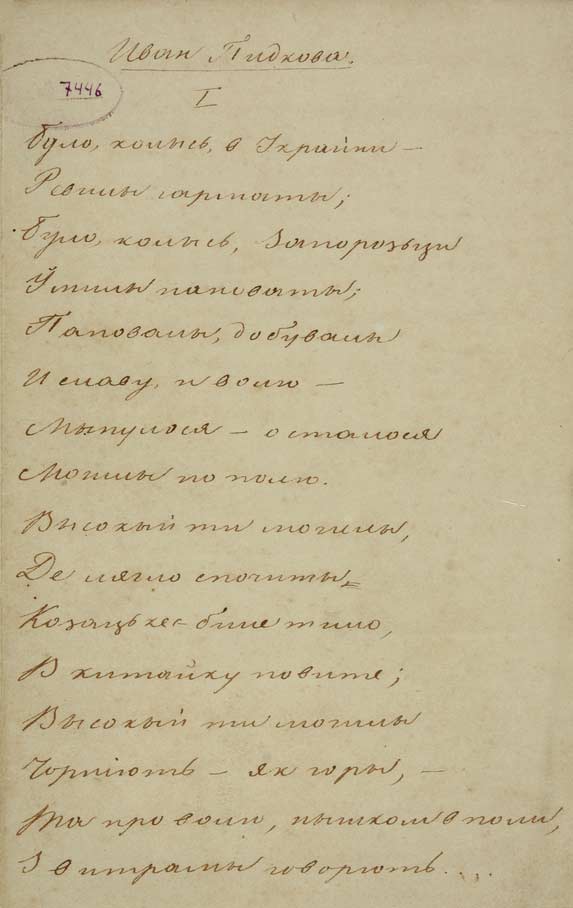 Иван Пидкова.
7446
I
Було, колысь, в Украйни —
Ревилы гарматы;
Було, колысь, Запорозьци
Умилы пановаты;
Пановалы, добувалы
И славу, и волю —
Мынулося — осталося
Могилы по полю.
Высокый ти могылы,
Де лягло спочиты =
Козацькее биле тило,
В китайку повите;
Высокый ти могилы
Чорніють — як горы, —
Та про волю, нышком в поли,
З витрамы говорють....